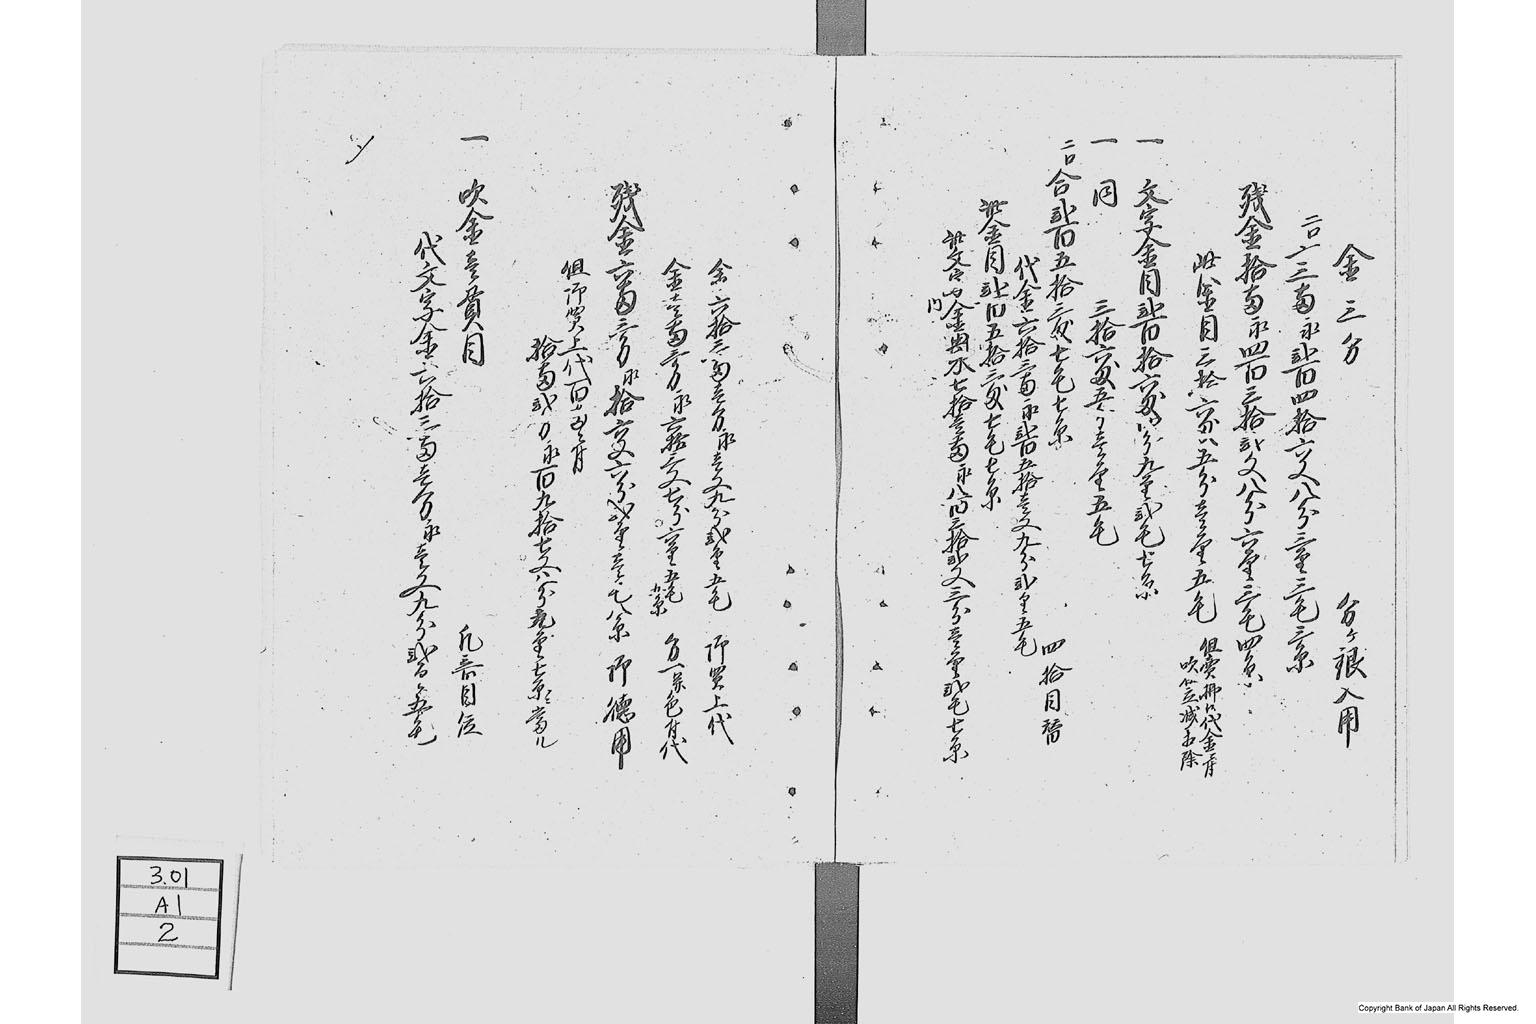 金三分 分ケ銀入用
二口〆三両永弐百四拾六文八分三厘三毛三糸
残金拾両永四百三拾弐文八分六厘三毛四糸
此金目三拾六匁五分壱厘五毛
但売払代金ニ而
吹立減相除
一 文字金目弐百拾六匁 九厘弐毛七糸
一 同 三拾六匁五分壱厘五毛
二口
合弐百五拾三匁七毛七糸 四拾目替
代金六拾三両永弐百五拾壱文九分弐厘五毛
此金目弐百五拾三匁七毛七糸
此文字金 七拾壱両永八百三拾弐文三分壱厘弐毛七糸
内
金六拾三両壱分永壱文九分弐厘五毛 御買上代
金壱両三分永六拾三文七分六厘五毛九糸 分一並色付代
残金六両三分永拾六文六分弐厘壱毛八糸 御徳用
但御買上代百両ニ付
拾両弐分永百九拾七文八分 厘七糸ニ当ル
一 吹金壱貫目 凡壱目位
代文字金六拾三両壱分永壱文九分弐厘五毛
3.01
A1
2
Copyright Bank of Japan All Rights Reserved.